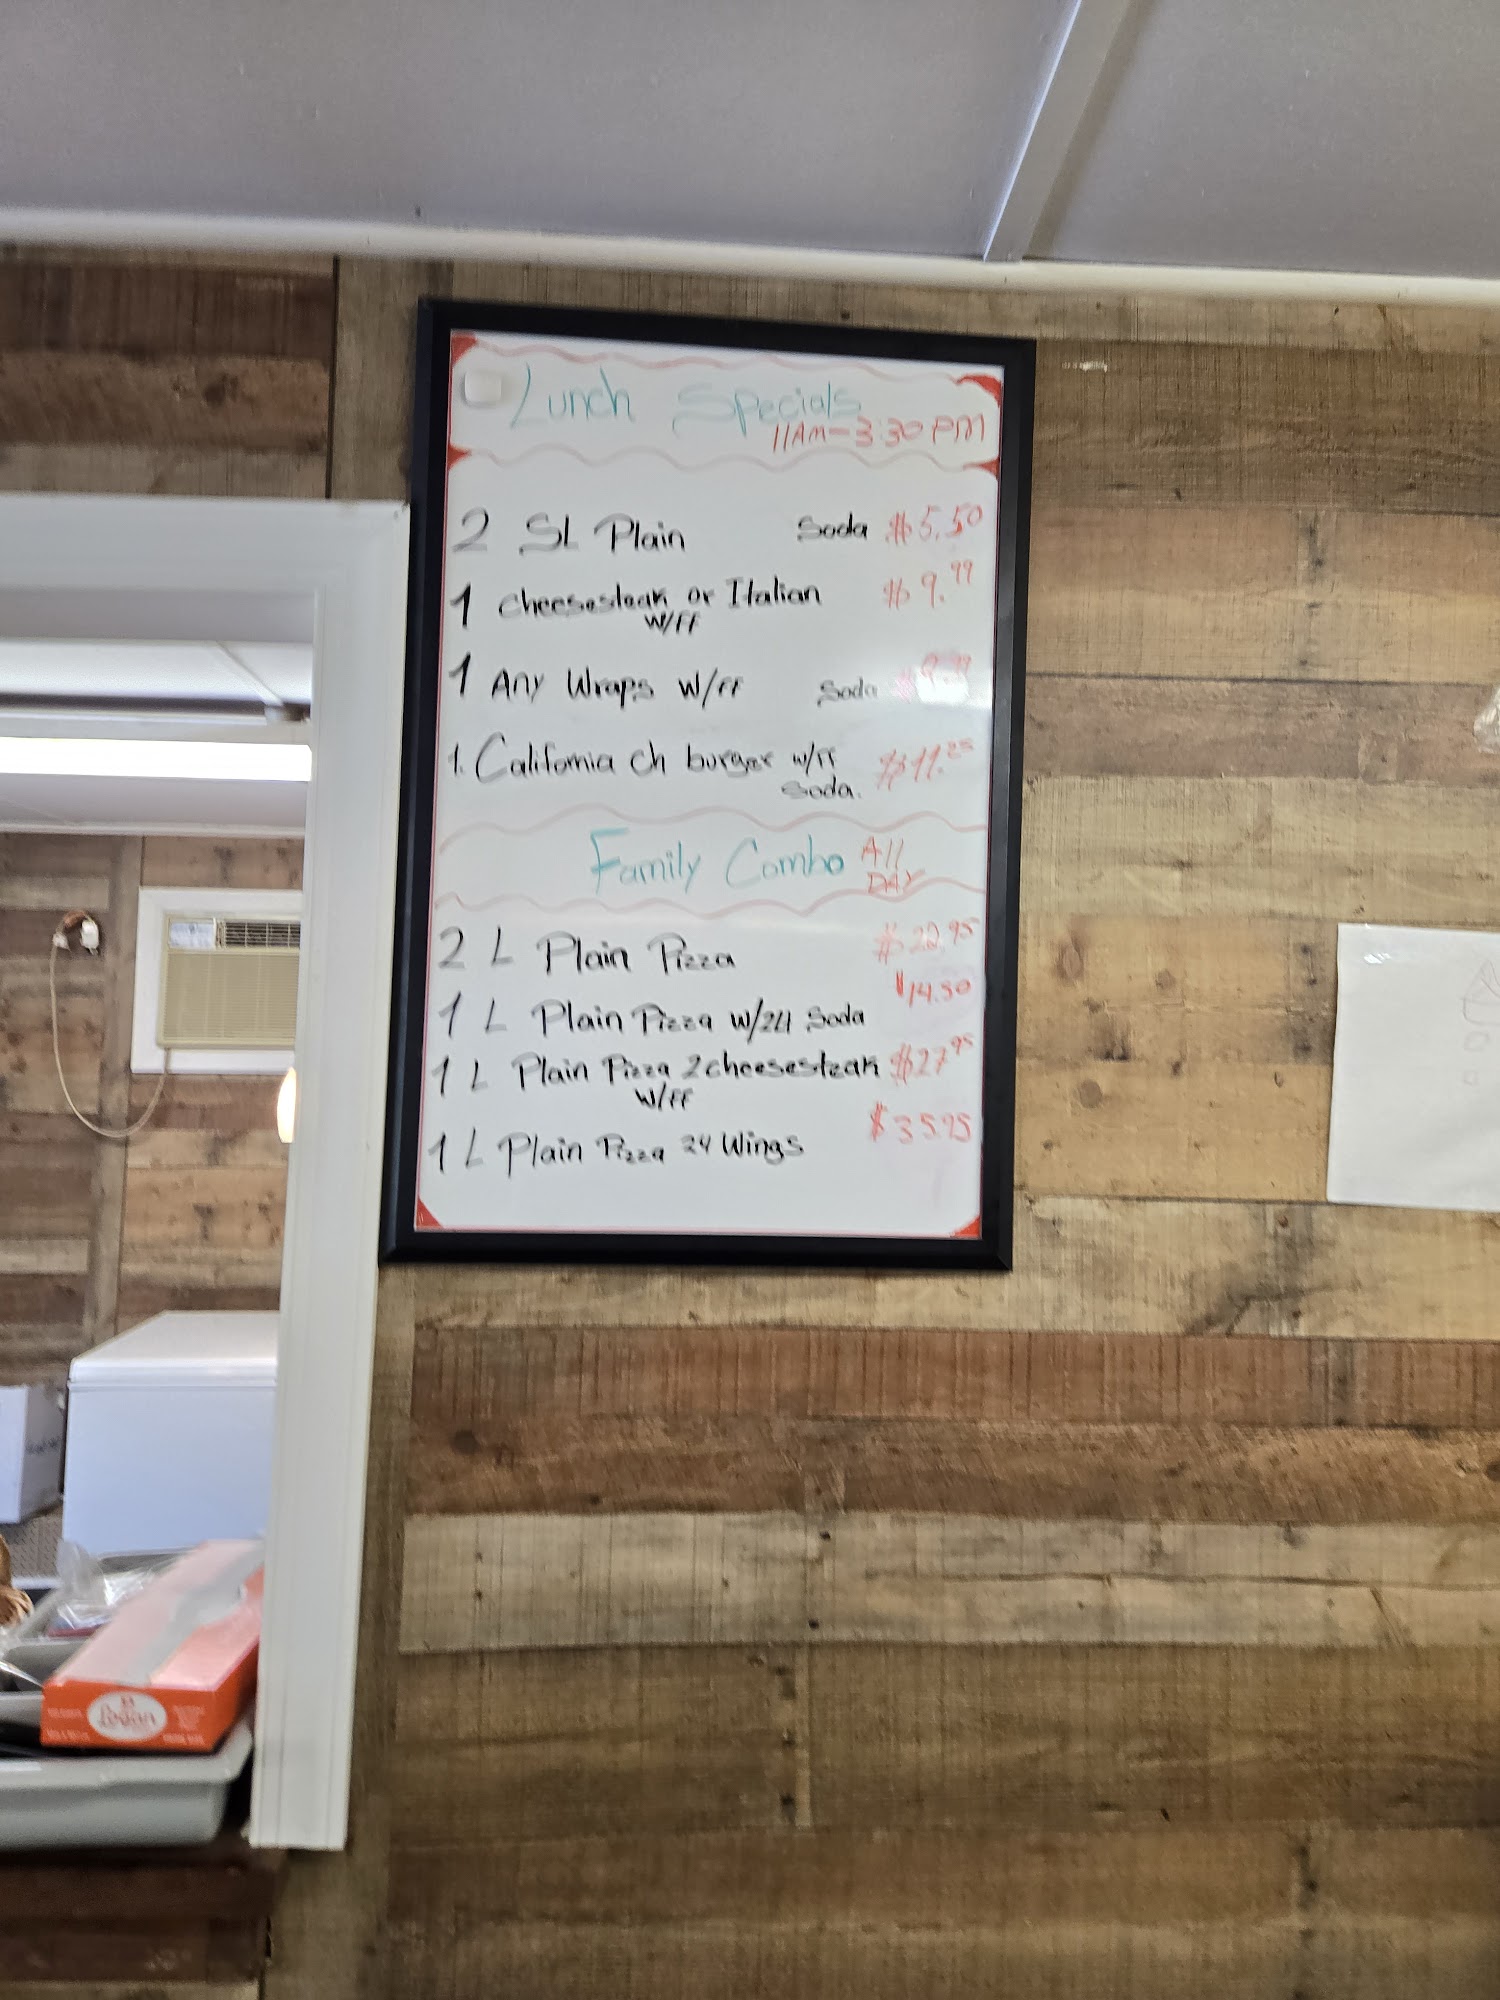 Lunch Specials
11AM-3:30 PM
2 SL Plain Soda $5.50
1 Cheesesteak or Italian $9.99
W/FF
1 Any Wraps W/FF Soda $9.99
1. California ch burger w/FF $11.25
Soda.
Family Combo All
DAY
2 L Plain Pizza $22.95
1 L Plain Pizza w/2Lt Soda $14.50
1 L Plain Pizza 2 cheesesteak $27.95
W/FF
1 L Plain Pizza 24 Wings $35.95